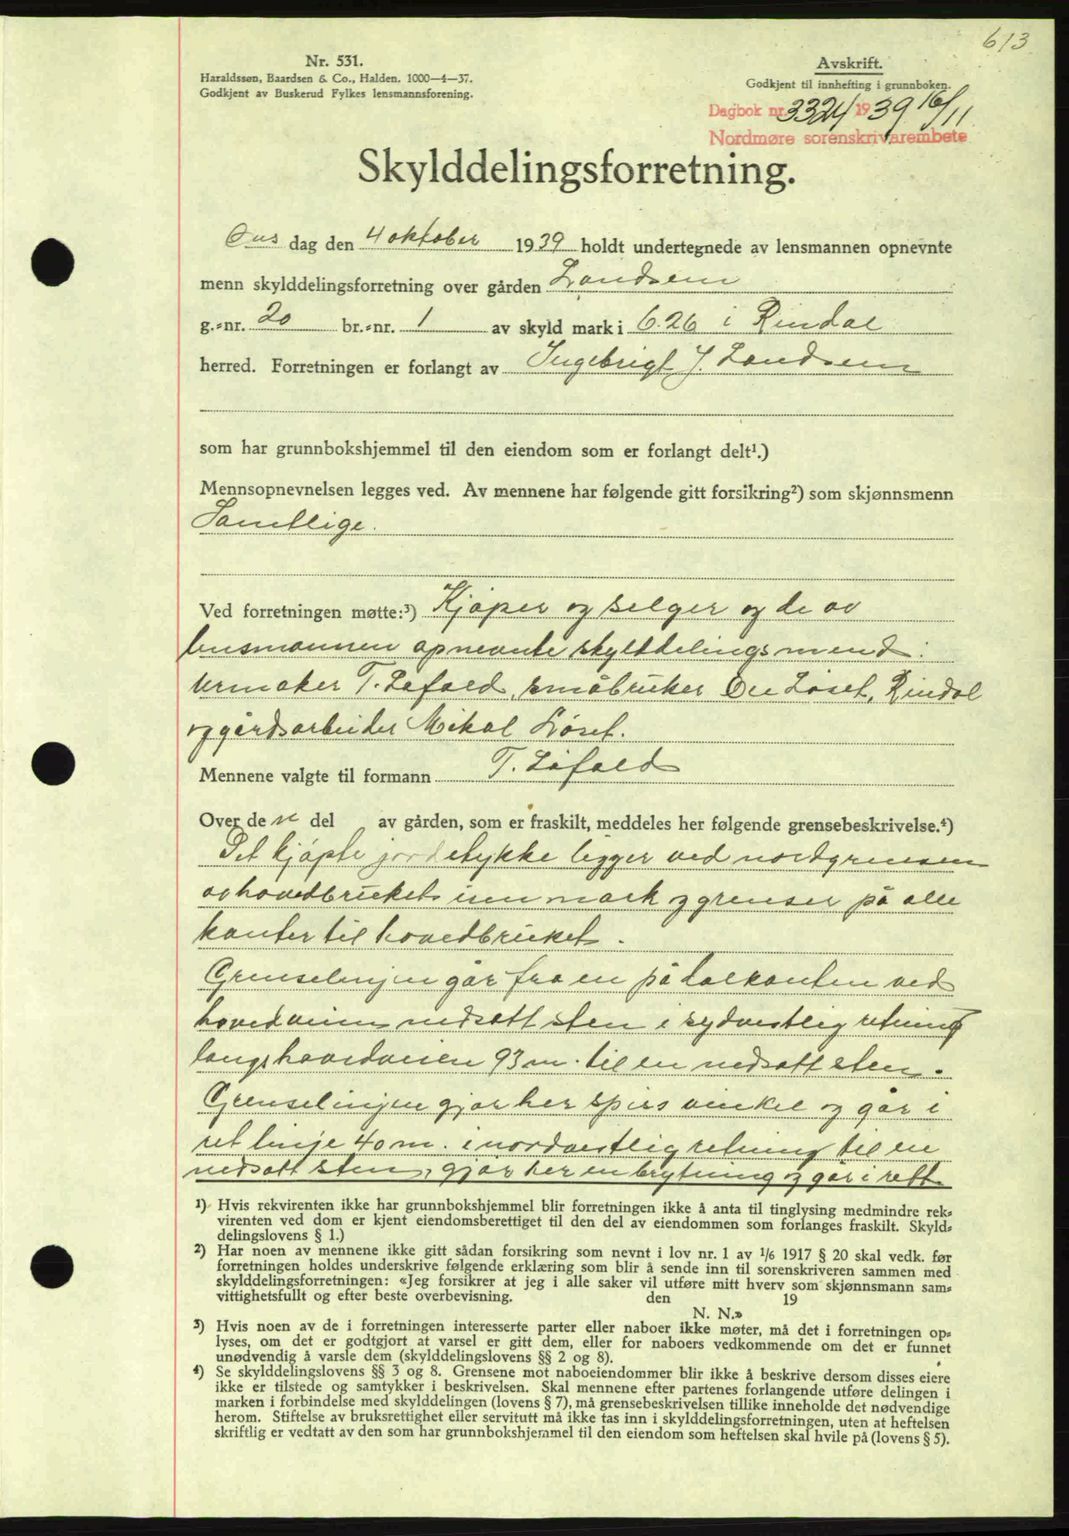 613
Nr. 531.
Haraldssøn, Baardsen & Co., Halden. 1000—4—37.
Godkjent av Buskerud Fylkes lensmannsforening.
Avskrift.
Godkjent til innhefting i grunnboken.
Dagbok nr. 3324 1939 16/11
Nordmøre sorenskrivarembete
Skylddelingsforretning.
Ons dag den 4 oktober 1939 holdt undertegnede av lensmannen opnevnte
menn skylddelingsforretning over gården Landsem
g.-nr. 20 br.-nr. 1 av skyld mark i 6.26 i Rindal
herred. Forretningen er forlangt av Ingebrigt J. Landsem
som har grunnbokshjemmel til den eiendom som er forlangt delt¹.)
Mennsopnevnelsen legges ved. Av mennene har følgende gitt forsikring²) som skjønnsmenn
Samtlige.
Ved forretningen møtte:³) Kjøper og selger og de av
lensmannen opnevnte skylddelingsmend:
urmaker T. Løfald, småbruker Ole Løset, Rindal
og gårdsarbeider Mikal Løset.
Mennene valgte til formann T. Løfald
Over de n del av gården, som er fraskilt, meddeles her følgende grensebeskrivelse.⁴)
Det kjøpte jordstykke ligger ved nordgrensen
av hovedbrukets innmark og grenser på alle
kanter til hovedbruket.
Grenselinjen går fra en på dalkanten ved
hovedveien nedsatt sten i sydvestlig retning
langs hovedveien 93 m. til en nedsatt sten.
Grenselinjen gjør her spiss vinkel og går i
ret linje 40 m. i nordvestlig retning til en
nedsatt sten, gjør her en brytning og går i rett
¹) Hvis rekvirenten ikke har grunnbokshjemmel blir forretningen ikke å anta til tinglysing medmindre rek-
virenten ved dom er kjent eiendomsberettiget til den del av eiendommen som forlanges fraskilt. Skyld-
delingslovens § 1.)
²) Har noen av mennene ikke gitt sådan forsikring som nevnt i lov nr. 1 av 1/6 1917 § 20 skal vedk. før
forretningen holdes underskrive følgende erklæring som blir å sende inn til sorenskriveren sammen med
skylddelingsforretningen: «Jeg forsikrer at jeg i alle saker vil utføre mitt hverv som skjønnsmann sam-
vittighetsfullt og efter beste overbevisning. den 19
N. N.»
³) Hvis noen av de i forretningen interesserte parter eller naboer ikke møter, må det i forretningen op-
lyses, om det er godtgjort at varsel er gitt dem, eller for naboers vedkommende om det er funnet
unødvendig å varsle dem (skylddelingslovens §§ 2 og 8).
⁴) Se skylddelingslovens §§ 3 og 8. Grensene mot naboeiendommer blir ikke å beskrive dersom disses eiere
ikke er tilstede og samtykker i beskrivelsen. Skal mennene efter partenes forlangende utføre delingen i
marken i forbindelse med skylddelingen (lovens § 7), må grensebeskrivelsen tillike inneholde det nødvendige
herom. Stiftelse av bruksrettighet eller servitutt må ikke tas inn i skylddelingsforretningen, uten at heftelsen
skriftlig er vedtatt av den som har grunnbokshjemmel til den eiendom som heftelsen skal hvile på (lovens § 5).